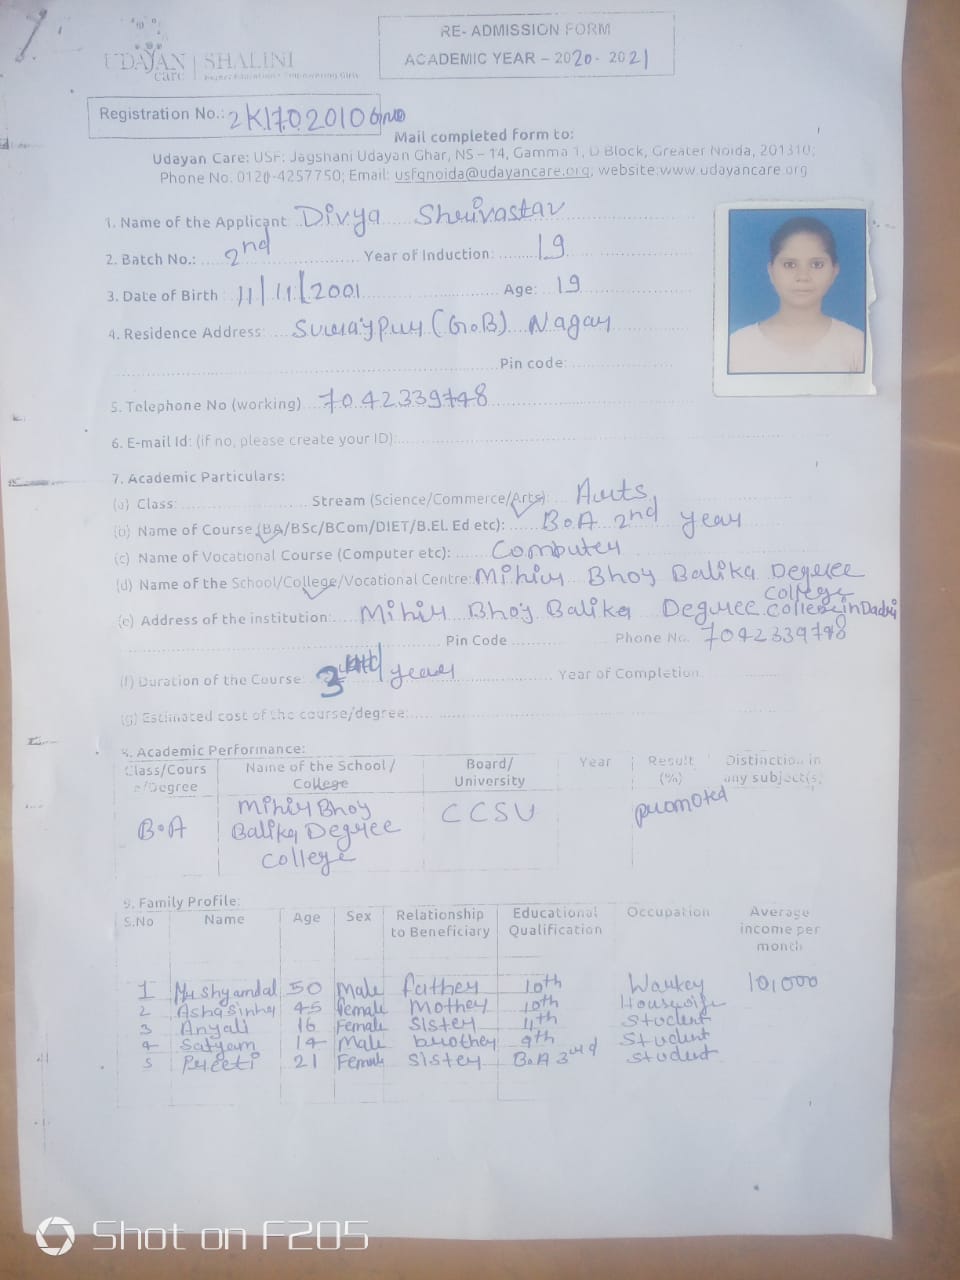 UDAYAN care | SHALINI
RE- ADMISSION FORM
ACADEMIC YEAR – 2020- 2021
Registration No.: 2K17020106
Mail completed form to:
Udayan Care: USF: Jagshani Udayan Ghar, NS – 14, Gamma 1, D Block, Greater Noida, 201310;
Phone No. 0120-4257750; Email: usfgnoida@udayancare.org; website:www.udayancare.org
1. Name of the Applicant: Divya Shrivastav
2. Batch No.: 2nd Year of Induction: 19
3. Date of Birth : 11/11/2001 Age: 19
4. Residence Address: Surajpur (G.B) Nagar
Pin code:
5. Telephone No (working) 7042339748
6. E-mail Id: (if no, please create your ID):
7. Academic Particulars:
(a) Class: Stream (Science/Commerce/Arts) Arts
(b) Name of Course (BA/BSc/BCom/DIET/B.El. Ed etc): B.A 2nd year
(c) Name of Vocational Course (Computer etc): Computer
(d) Name of the School/College/Vocational Centre: Mihir Bhoj Balika Degree
College
(e) Address of the institution: Mihir Bhoj Balika Degree College in Dadri
Pin Code Phone No. 7042339748
(f) Duration of the Course: 3 years Year of Completion
(g) Estimated cost of the course/degree:
8. Academic Performance:
Class/Cours e/Degree Name of the School / College Board/ University Year Result (%) Distinction in any subject(s)
B.A Mihir Bhoj Balika Degree College CCSU promoted
9. Family Profile:
S.No Name Age Sex Relationship to Beneficiary Educational Qualification Occupation Average income per month
1 Mr Shyamlal 50 Male father 10th Worker 10,000
2 45 female Mother 10th Housewife
3 Anjali 16 Female sister 11th Student
4 Satyam 14 Male brother 9th Student
5 Preeti 21 Female sister B.A 3rd student
Shot on F205